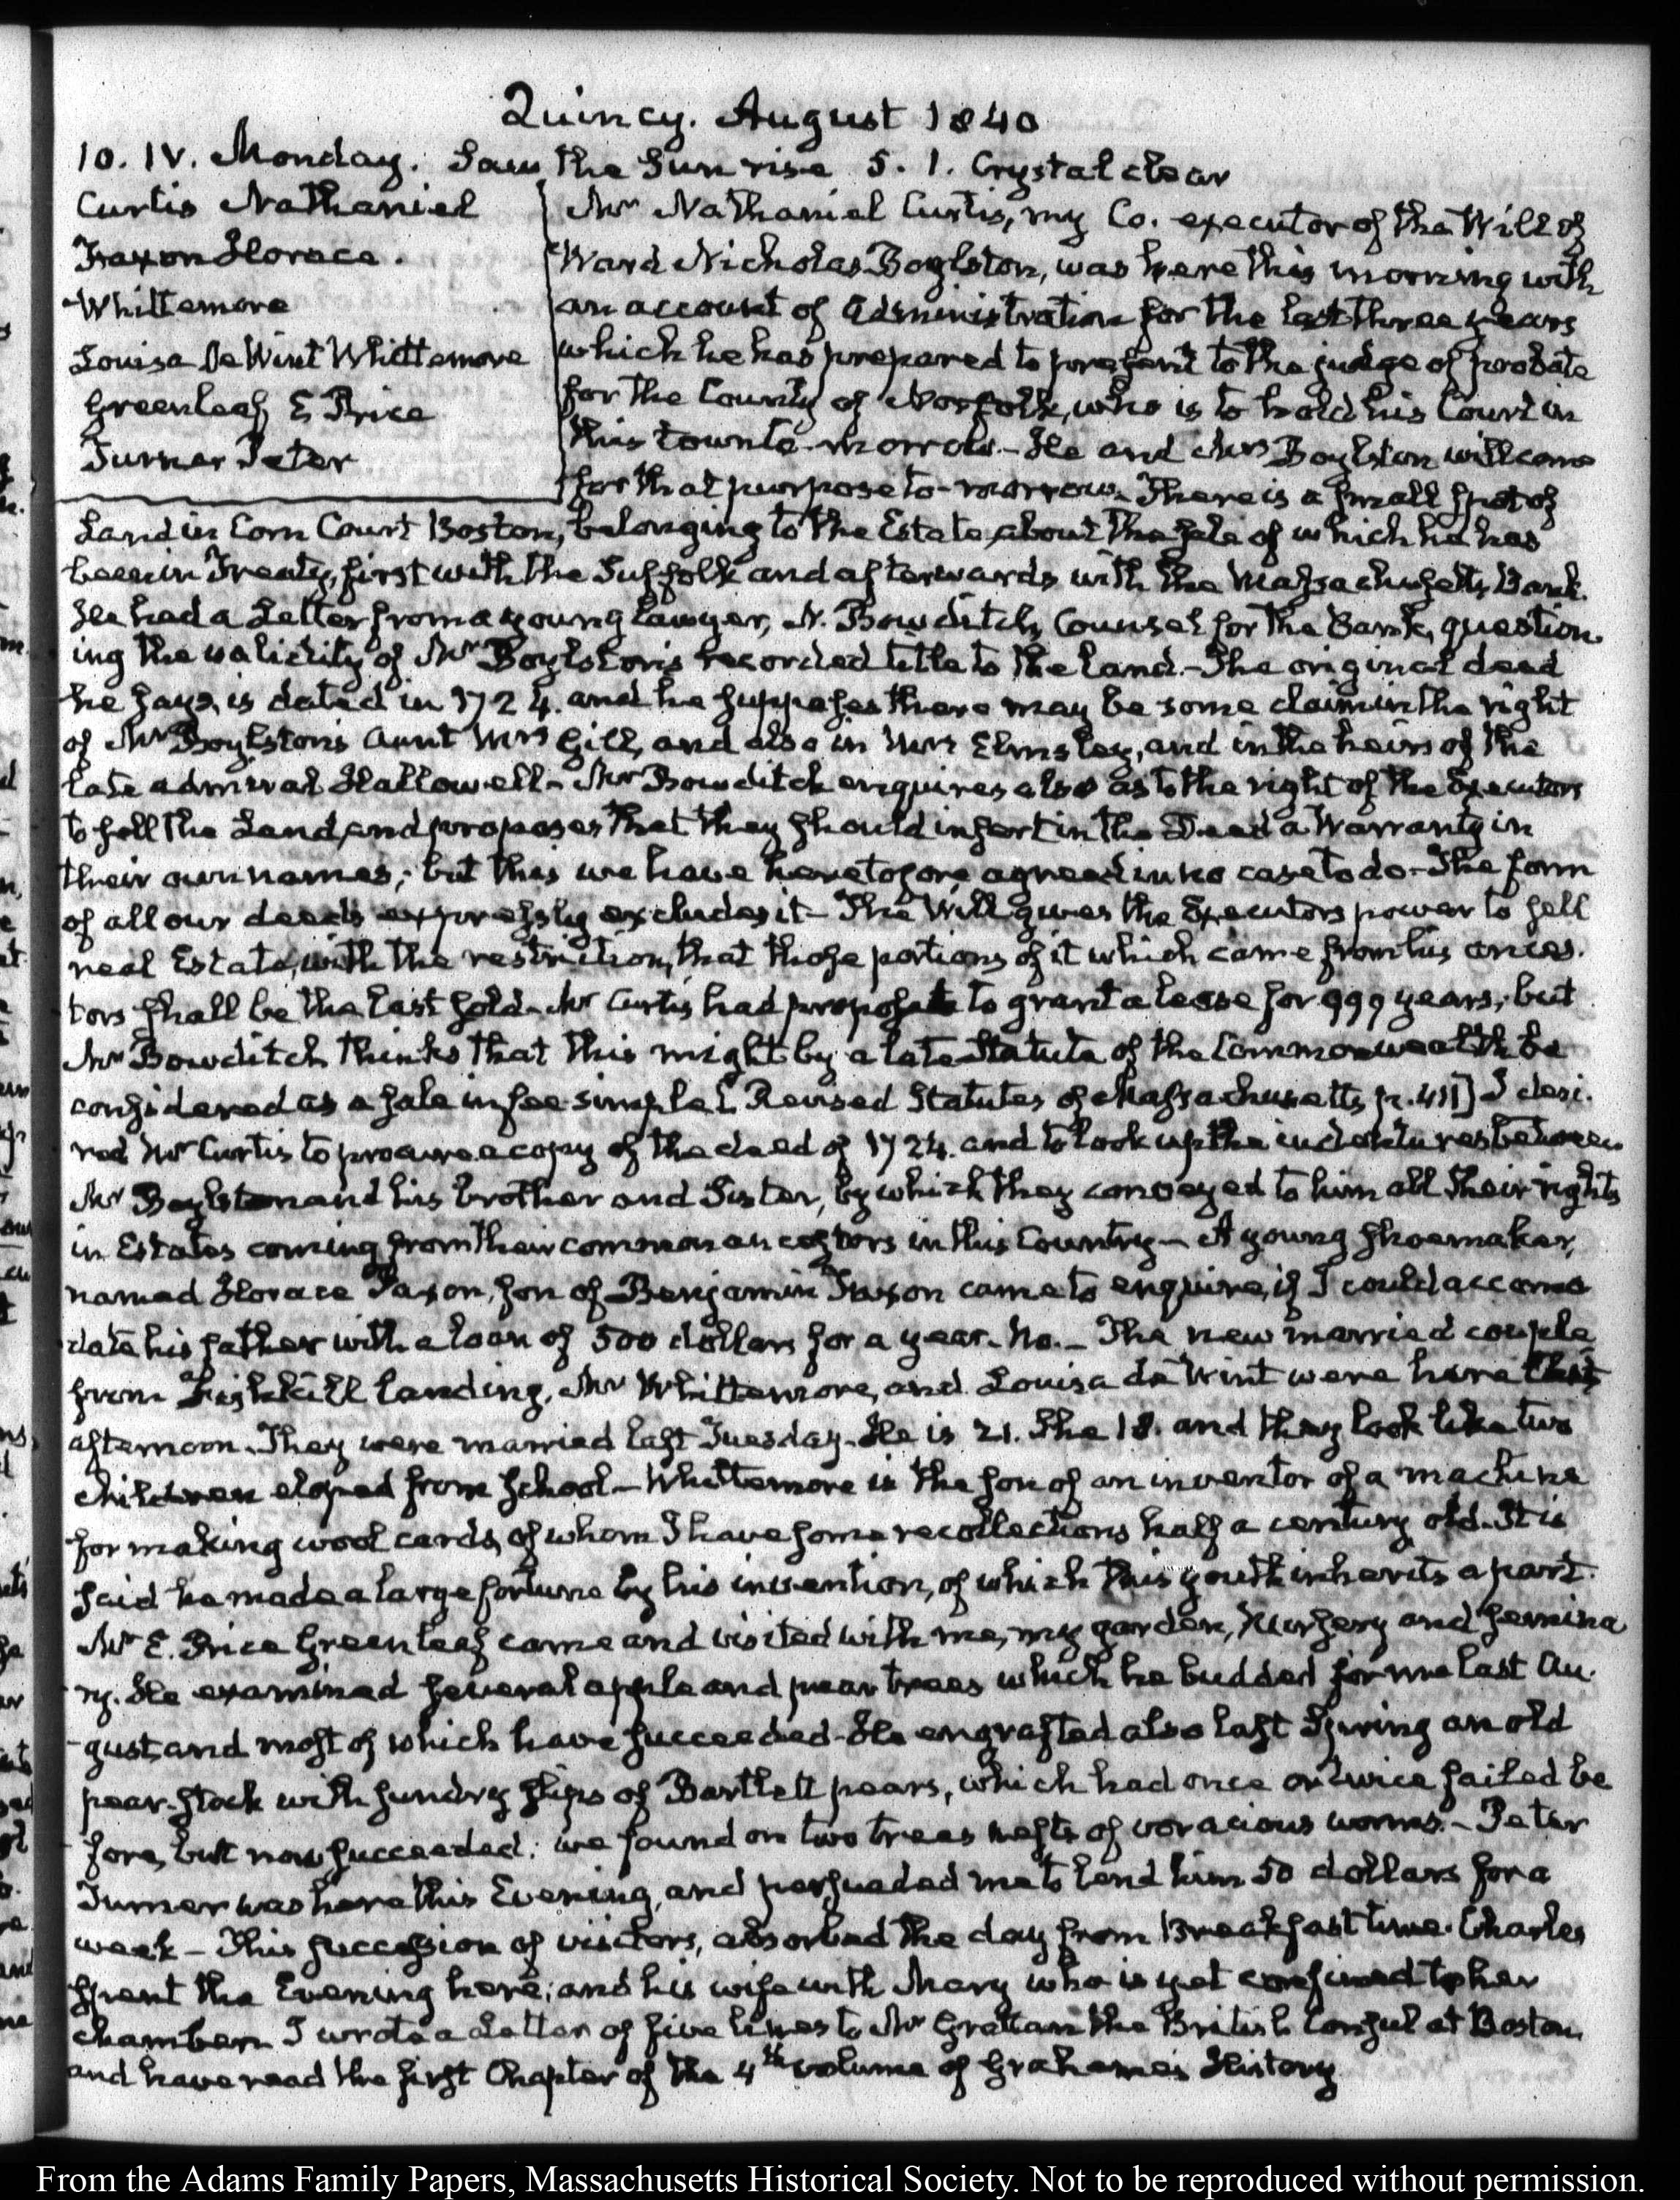 Quincy. August 1840
10. IV. Monday. Saw the Sun rise 5. 1. Crystal clear
Curtis Nathaniel
Faxon Horace.
Whittemore
Louisa De Wint Whittemore
Greenleaf E Price
Turner Peter
Mr Nathaniel Curtis, my Co. executor of the Will of
Ward Nicholas Boylston, was here this morning with
an account of administration for the last three years
which he has prepared to present to the judge of probate
for the County of Norfolk, who is to hold his Court in
this town to-morrow. - He and Mrs Boylston will come
for that purpose to-morrow. There is a small spot of
Land in Corn Court Boston, belonging to the Estate, about the sale of which he has
been in Treaty, first with the Suffolk and afterwards with the Massachusetts Bank.
He had a Letter from a young lawyer, N. Bowditch, Counsel for the Bank, question-
ing the validity of Mr Boylston's recorded title to the land. - The original deed
he says, is dated in 1724. and he supposes there may be some claim in the right
of Mr Boylston's aunt Mrs Gill, and also in Mrs Elmsley, and in the heirs of the
late admiral Hallowell - Mr Bowditch enquires also as to the right of the Executors
to sell the Land, and proposes that they should insert in the Deed a Warranty in
their own names; but this we have heretofore agreed in no case to do - The form
of all our deeds expressly excludes it - The Will gives the Executors power to sell
real Estate, with the restriction, that those portions of it which came from his ances-
tors shall be the last sold - Mr Curtis had proposed to grant a lease for 999 years; but
Mr Bowditch thinks that this might by a late Statute of the Commonwealth be
considered as a sale in fee simple [Revised Statutes of Massachusetts p. 411] I desi-
red Mr Curtis to procure a copy of the deed of 1724. and to look up the indentures between
Mr Boylston and his brother and Sister, by which they conveyed to him all their rights
in Estates coming from their common ancestors in this Country - A young shoemaker,
named Horace Faxon, son of Benjamin Faxon came to enquire, if I could accomo
date his father with a loan of 500 dollars for a year. No. - The new married couple
from Fishkill landing, Mr Whittemore, and Louisa de Wint were here this
afternoon. They were married last Tuesday. He is 21. She 18. and they look like two
children eloped from School - Whittemore is the son of an inventor of a machine
for making wool cards, of whom I have some recollections half a century old. It is
said he made a large fortune by his invention, of which this youth inherits a part.
Mr E. Price Greenleaf came and visited with me, my garden, Nursery and semina
ry. He examined several apple and pear trees which he budded for me last Au-
gust, and most of which have succeeded - He engrafted also last Spring an old
pear-stock with sundry slips of Bartlett pears, which had once or twice failed be
fore, but now succeeded. we found on two trees nests of voracious worms. - Peter
Turner was here this Evening, and persuaded me to lend him 50 dollars for a
week - This succession of visitors, absorbed the day from Breakfast time. Charles
spent the Evening here; and his wife with Mary who is yet confined to her
chamber. I wrote a Letter of five lines to Mr Grattan the British Consul at Boston,
and have read the first Chapter of the 4th volume of Grahame's History
From the Adams Family Papers, Massachusetts Historical Society. Not to be reproduced without permission.